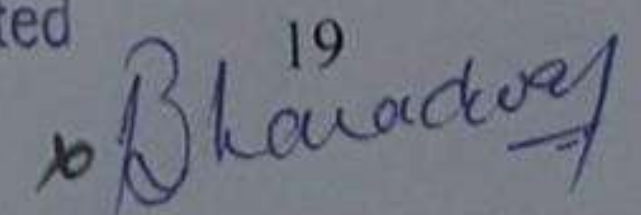 ted
19
x Bharadwaj